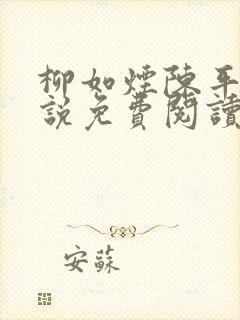 柳如煙陳平
說免費閱讀
安蘇